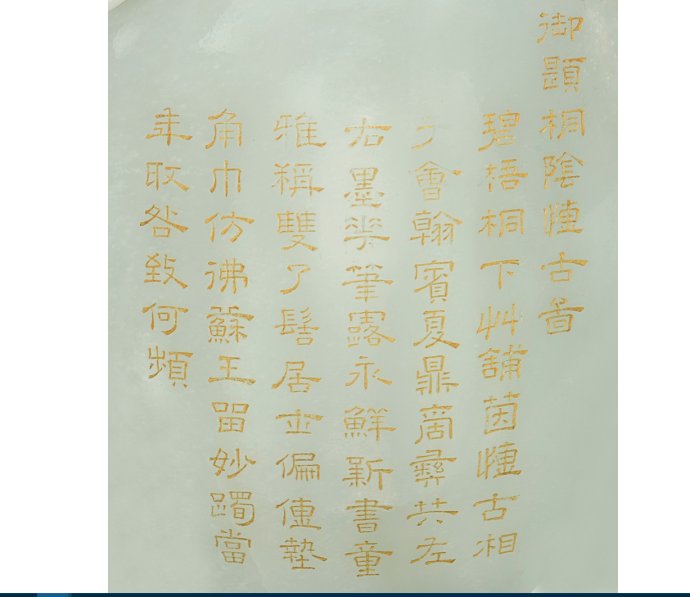 御題桐陰愽古啚
碧梧桐下艸舖茵愽古相
于會翰賓夏鼎商彝共左
右墨華筆露永鮮新書童
雅稱雙丫髻居士偏傳墊
角巾仿彿蘇王留妙躅當
年取咎致何頻